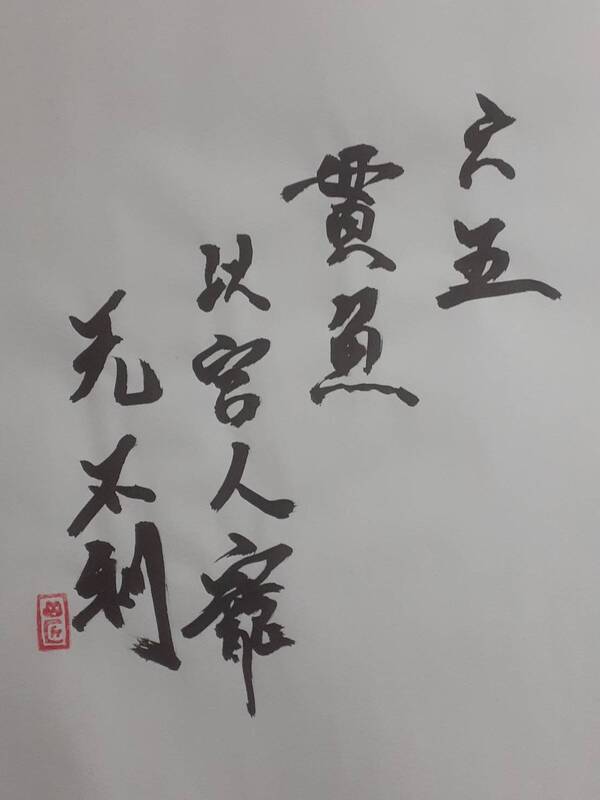 六五
貫魚
以宮人寵
无不利